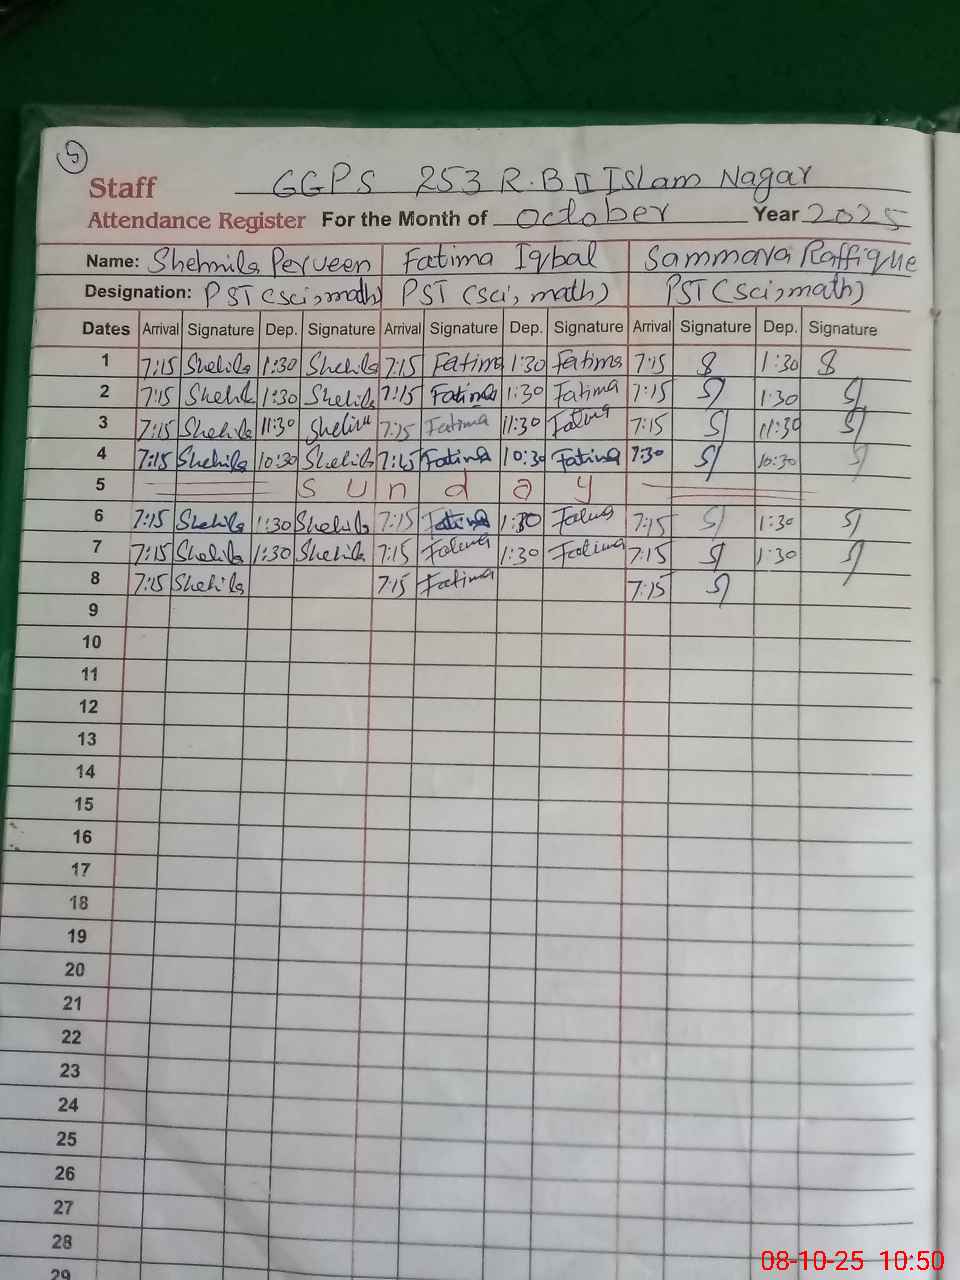 5
Staff GGPS 253 R.B II Islam Nagar
Attendance Register For the Month of October Year 2025
Name: Shehnila Perveen Fatima Iqbal Sammara Raffique
Designation: PST (sci, math) PST (sci, math) PST (sci, math)
Dates Arrival Signature Dep. Signature Arrival Signature Dep. Signature Arrival Signature Dep. Signature
1 7:15 Shehila 1:30 Shehila 7:15 Fatima 1:30 Fatima 7:15 1:30
2 7:15 Shehila 1:30 Shehila 7:15 Fatima 1:30 Fatima 7:15 1:30
3 7:15 Shehila 11:30 7:15 Fatima 11:30 Fatima 7:15 11:30
4 7:15 Shehila 10:30 Shehila 7:15 Fatima 10:30 Fatima 7:30 10:30
5 Sunday
6 7:15 Shehila 1:30 Shehila 7:15 Fatima 1:30 Fatima 7:15 1:30
7 7:15 Shehila 1:30 Shehila 7:15 Fatima 1:30 Fatima 7:15 1:30
8 7:15 Shehila 7:15 Fatima 7:15
9
10
11
12
13
14
15
16
17
18
19
20
21
22
23
24
25
26
27
28
29
08-10-25 10:50